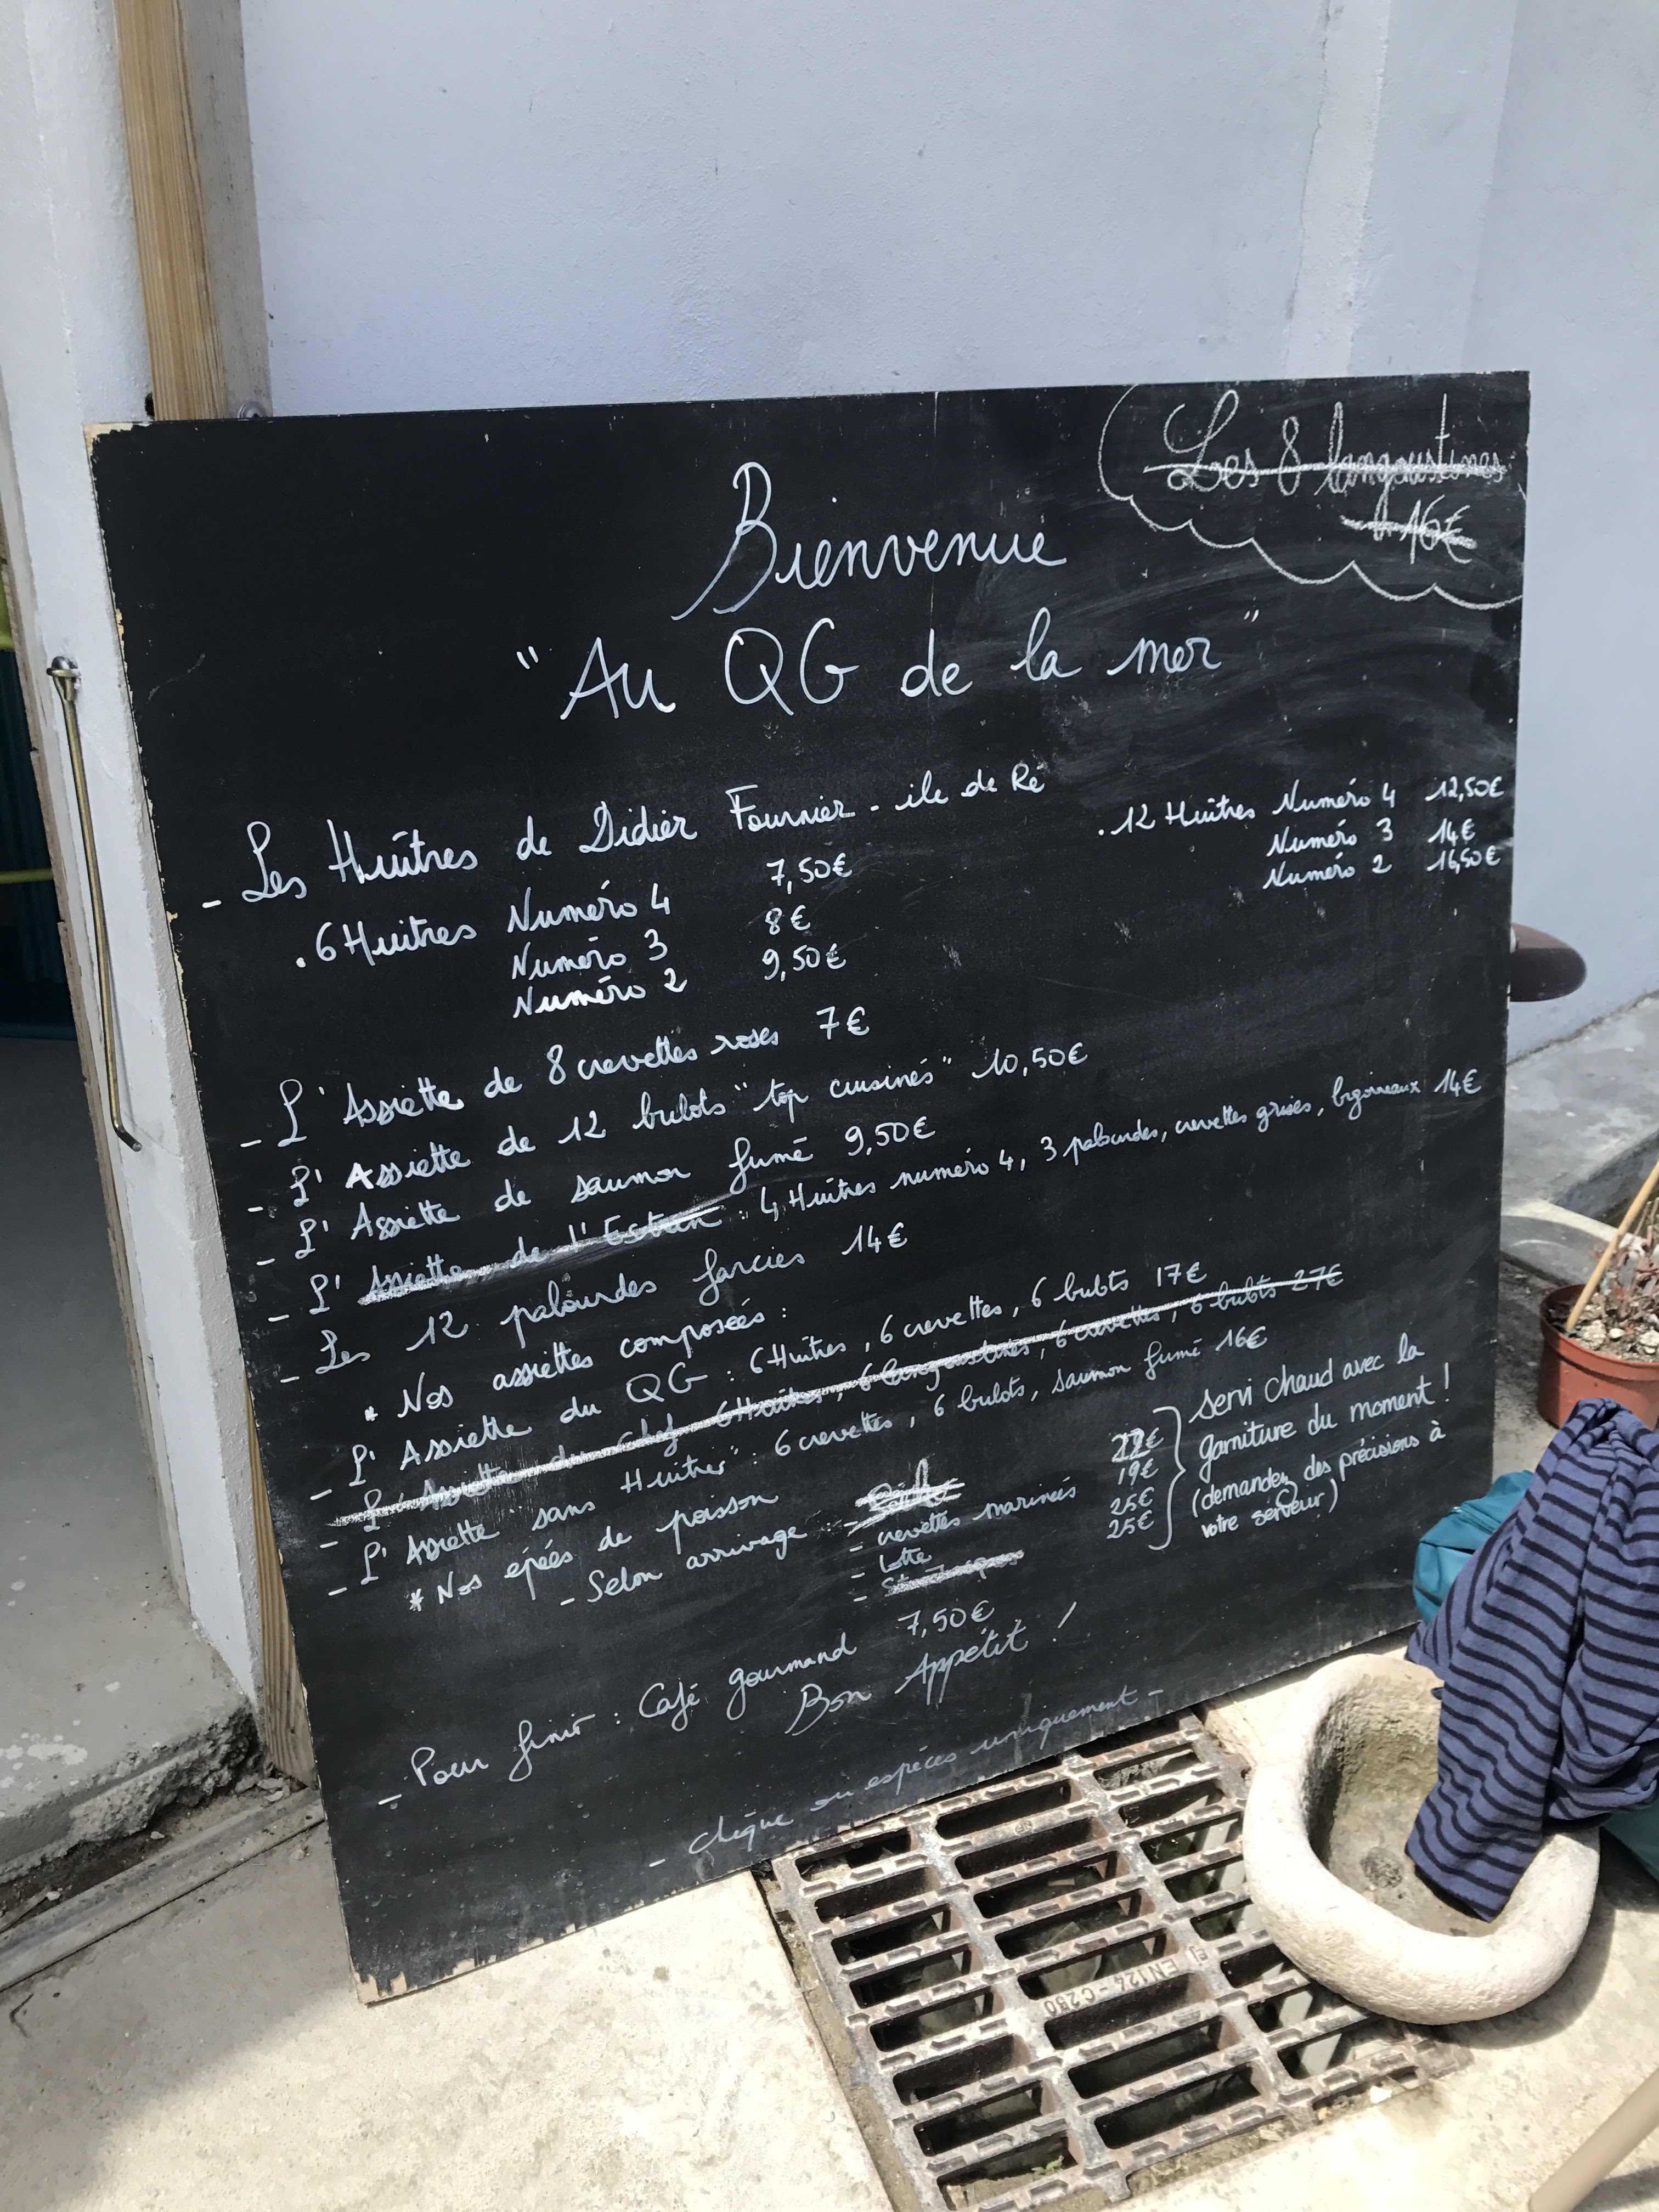 Les 8 langoustines
à 16€
Bienvenue
"Au QG de la mer"
- Les Huîtres de Didier Fournier - ile de Ré
. 6 Huîtres Numéro 4 7,50€
Numéro 3 8€
Numéro 2 9,50€
. 12 Huîtres Numéro 4 12,50€
Numéro 3 14€
Numéro 2 16,50€
- L'Assiette de 8 crevettes roses 7€
- L'Assiette de 12 bulots "top cuisinés" 10,50€
- L'Assiette de saumon fumé 9,50€
- L'Assiette de l'Estran : 4 Huîtres numéro 4, 3 palourdes, crevettes grises, bigorneaux 14€
- Les 12 palourdes farcies 14€
* Nos assiettes composées :
- L'Assiette du QG : 6 Huîtres, 6 crevettes, 6 bulots 17€
- L'Assiette du chef 6 Huîtres, 6 langoustines, 6 crevettes, 6 bulots 27€
- L'Assiette "sans Huître" : 6 crevettes, 6 bulots, saumon fumé 16€
* Nos épées de poisson
- Selon arrivage -
- crevettes marinées 19€
- Lotte 25€
- 25€
servi chaud avec la
garniture du moment !
(demandez des précisions à
votre serveur)
- Pour finir : Café gourmand 7,50€
Bon Appétit !
- chèque ou espèces uniquement -
EN124 - C250